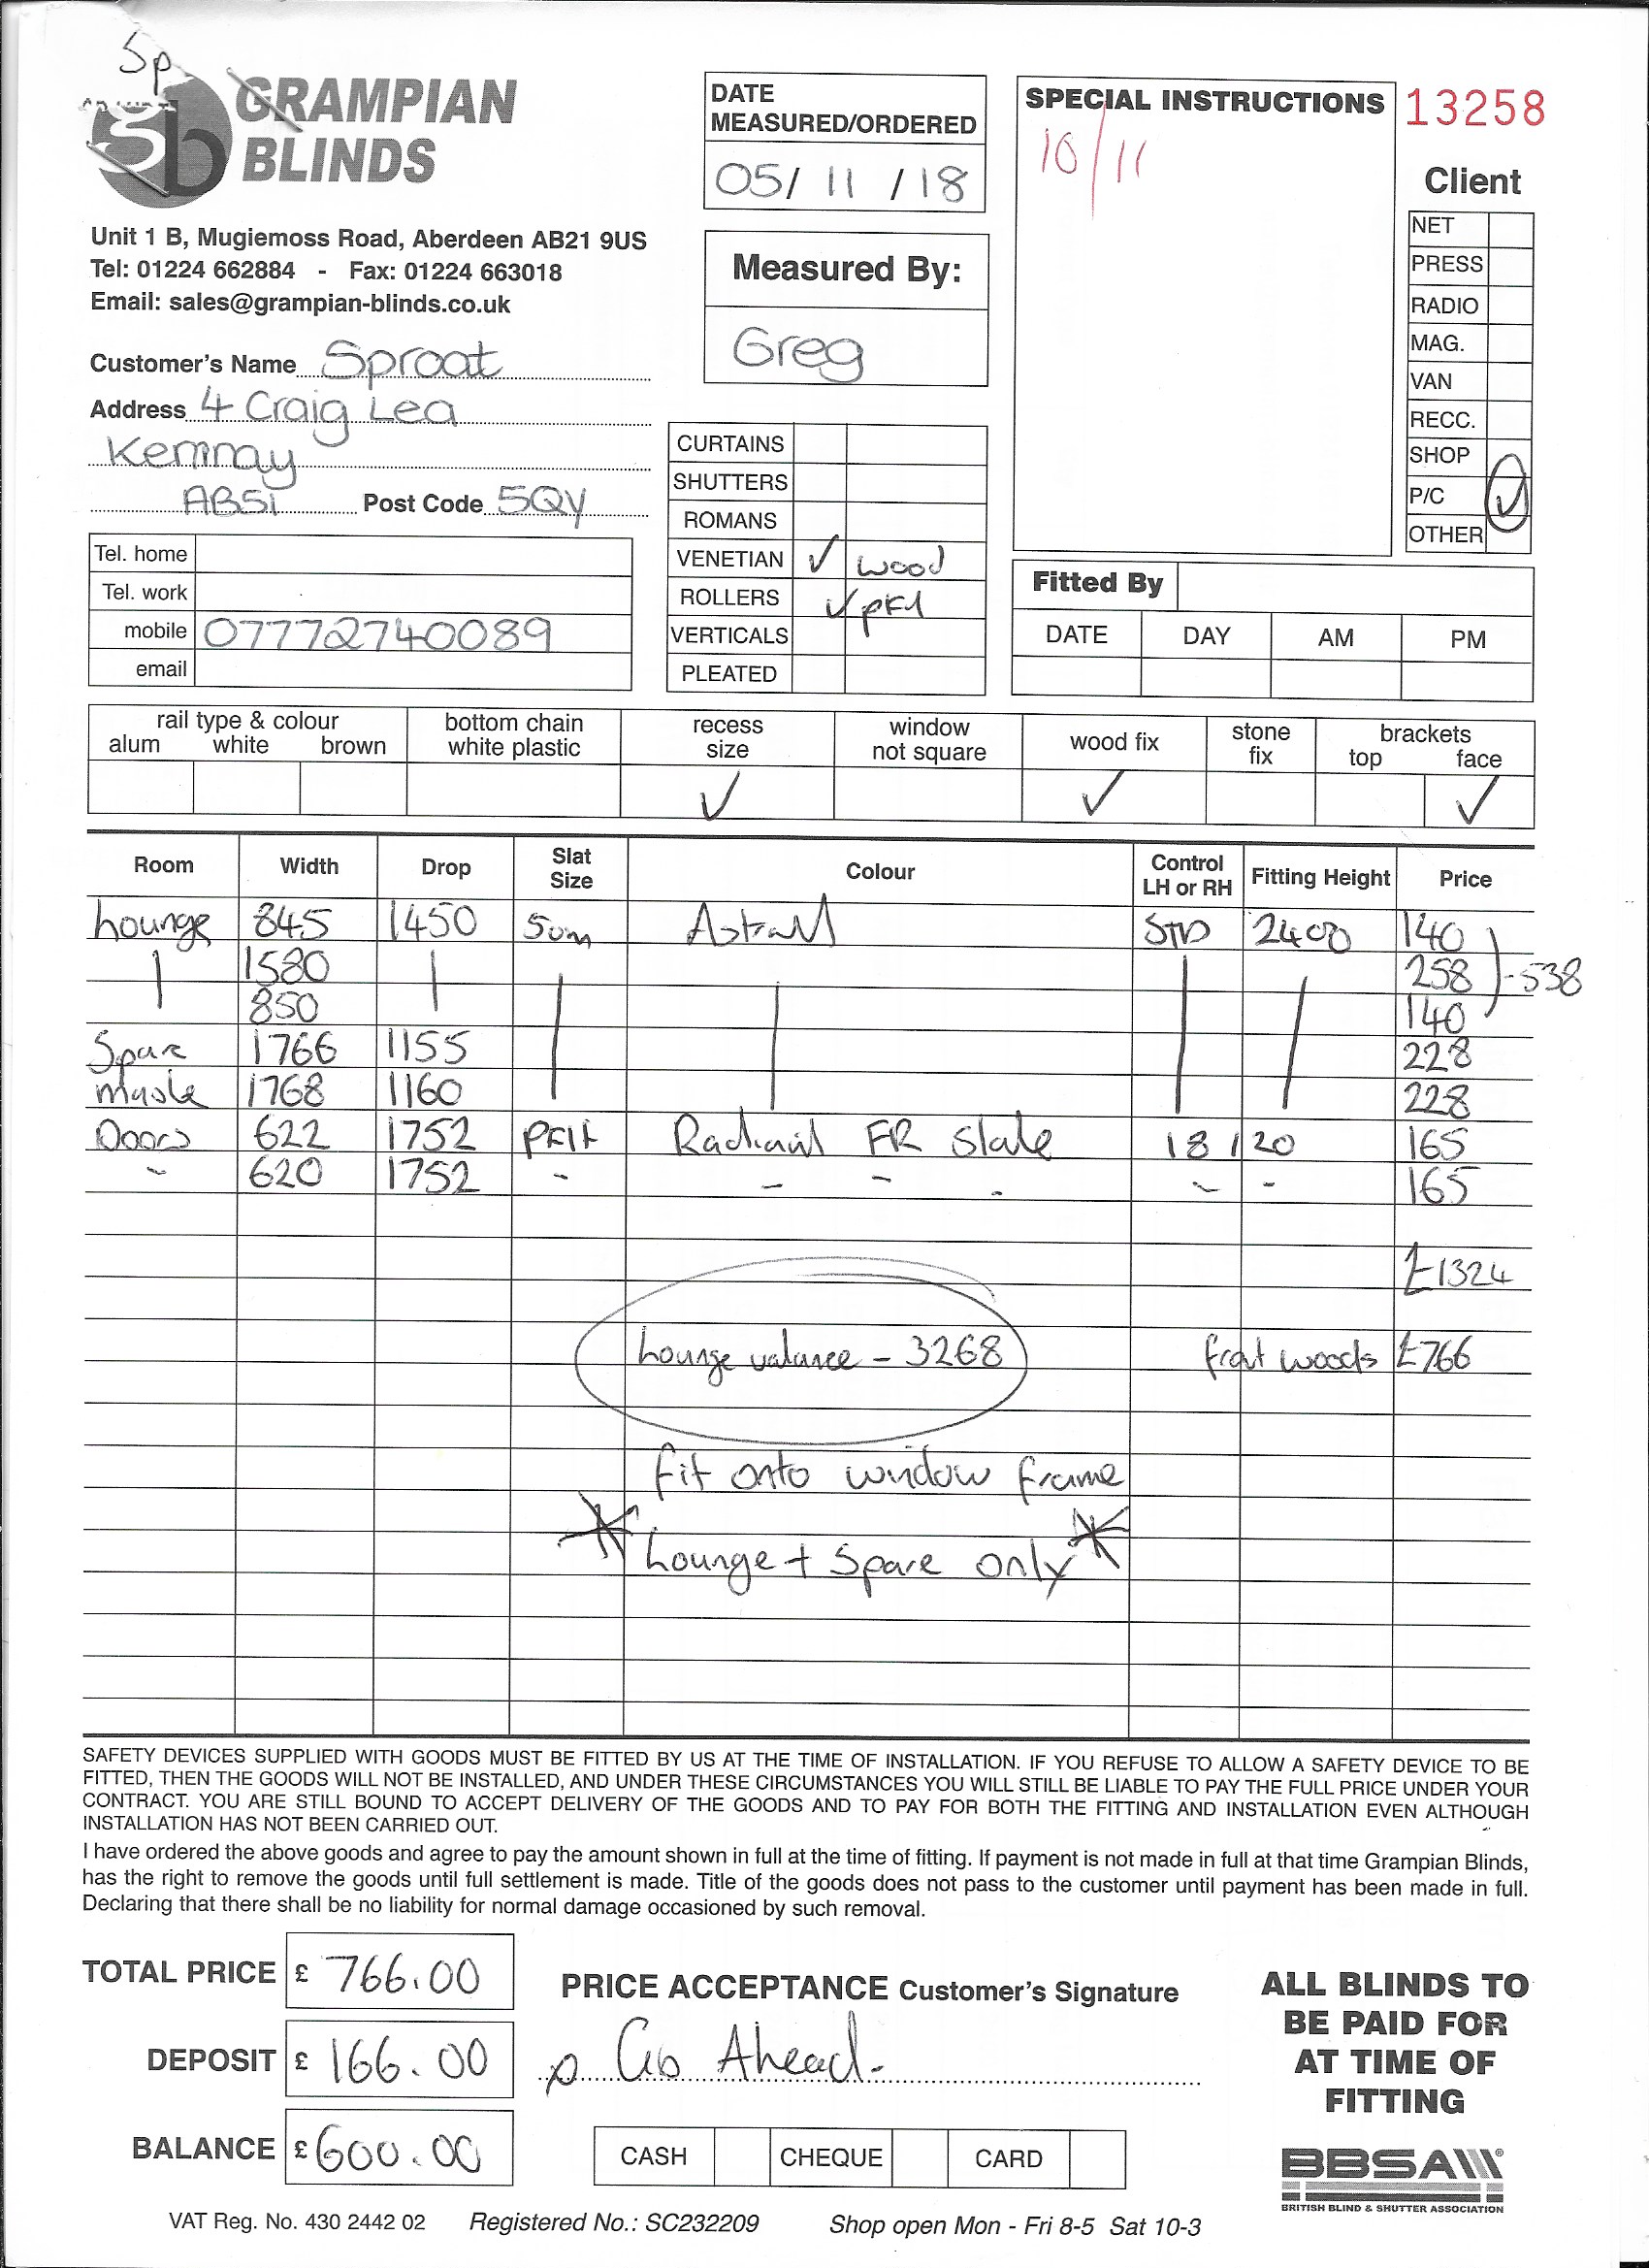 Sp
GRAMPIAN
BLINDS
gb
Unit 1 B, Mugiemoss Road, Aberdeen AB21 9US
Tel: 01224 662884 - Fax: 01224 663018
Email: sales@grampian-blinds.co.uk
Customer's Name Sproat
Address 4 Craig Lea
Kemnay
AB51 Post Code 5QY
Tel. home
Tel. work
mobile 07772740089
email
DATE
MEASURED/ORDERED
05/11/18
Measured By:
Greg
CURTAINS
SHUTTERS
ROMANS
VENETIAN ✓ wood
ROLLERS ✓ pfit
VERTICALS
PLEATED
SPECIAL INSTRUCTIONS
10/11
13258
Client
NET
PRESS
RADIO
MAG.
VAN
RECC.
SHOP
P/C ✓
OTHER
Fitted By
DATE DAY AM PM
rail type & colour
alum white brown
bottom chain
white plastic
recess
size ✓
window
not square
wood fix ✓
stone
fix
brackets
top face ✓
Room Width Drop Slat Size Colour Control LH or RH Fitting Height Price
Lounge 845 1450 50m STD 2400 140
1580 258 - 538
850 140
Spare 1766 1155 228
Master 1768 1160 228
Doors 622 1752 PFit FR Slate 18 120 165
- 620 1752 - - - - - - 165
£1324
Lounge valance - 3268 front woods £766
fit onto window frame
* Lounge + Spare only *
SAFETY DEVICES SUPPLIED WITH GOODS MUST BE FITTED BY US AT THE TIME OF INSTALLATION. IF YOU REFUSE TO ALLOW A SAFETY DEVICE TO BE
FITTED, THEN THE GOODS WILL NOT BE INSTALLED, AND UNDER THESE CIRCUMSTANCES YOU WILL STILL BE LIABLE TO PAY THE FULL PRICE UNDER YOUR
CONTRACT. YOU ARE STILL BOUND TO ACCEPT DELIVERY OF THE GOODS AND TO PAY FOR BOTH THE FITTING AND INSTALLATION EVEN ALTHOUGH
INSTALLATION HAS NOT BEEN CARRIED OUT.
I have ordered the above goods and agree to pay the amount shown in full at the time of fitting. If payment is not made in full at that time Grampian Blinds,
has the right to remove the goods until full settlement is made. Title of the goods does not pass to the customer until payment has been made in full.
Declaring that there shall be no liability for normal damage occasioned by such removal.
TOTAL PRICE £ 766.00
DEPOSIT £ 166.00
BALANCE £ 600.00
PRICE ACCEPTANCE Customer's Signature
p Go Ahead.
CASH CHEQUE CARD
ALL BLINDS TO
BE PAID FOR
AT TIME OF
FITTING
BBSA
BRITISH BLIND & SHUTTER ASSOCIATION
VAT Reg. No. 430 2442 02 Registered No.: SC232209 Shop open Mon - Fri 8-5 Sat 10-3